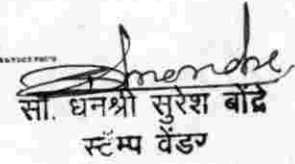 सौ. धनश्री सुरेश बोंद्रे
स्टॅम्प वेंडर